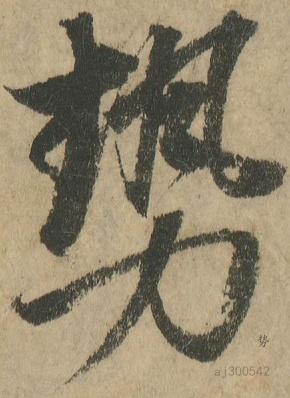 势
势
aj300542